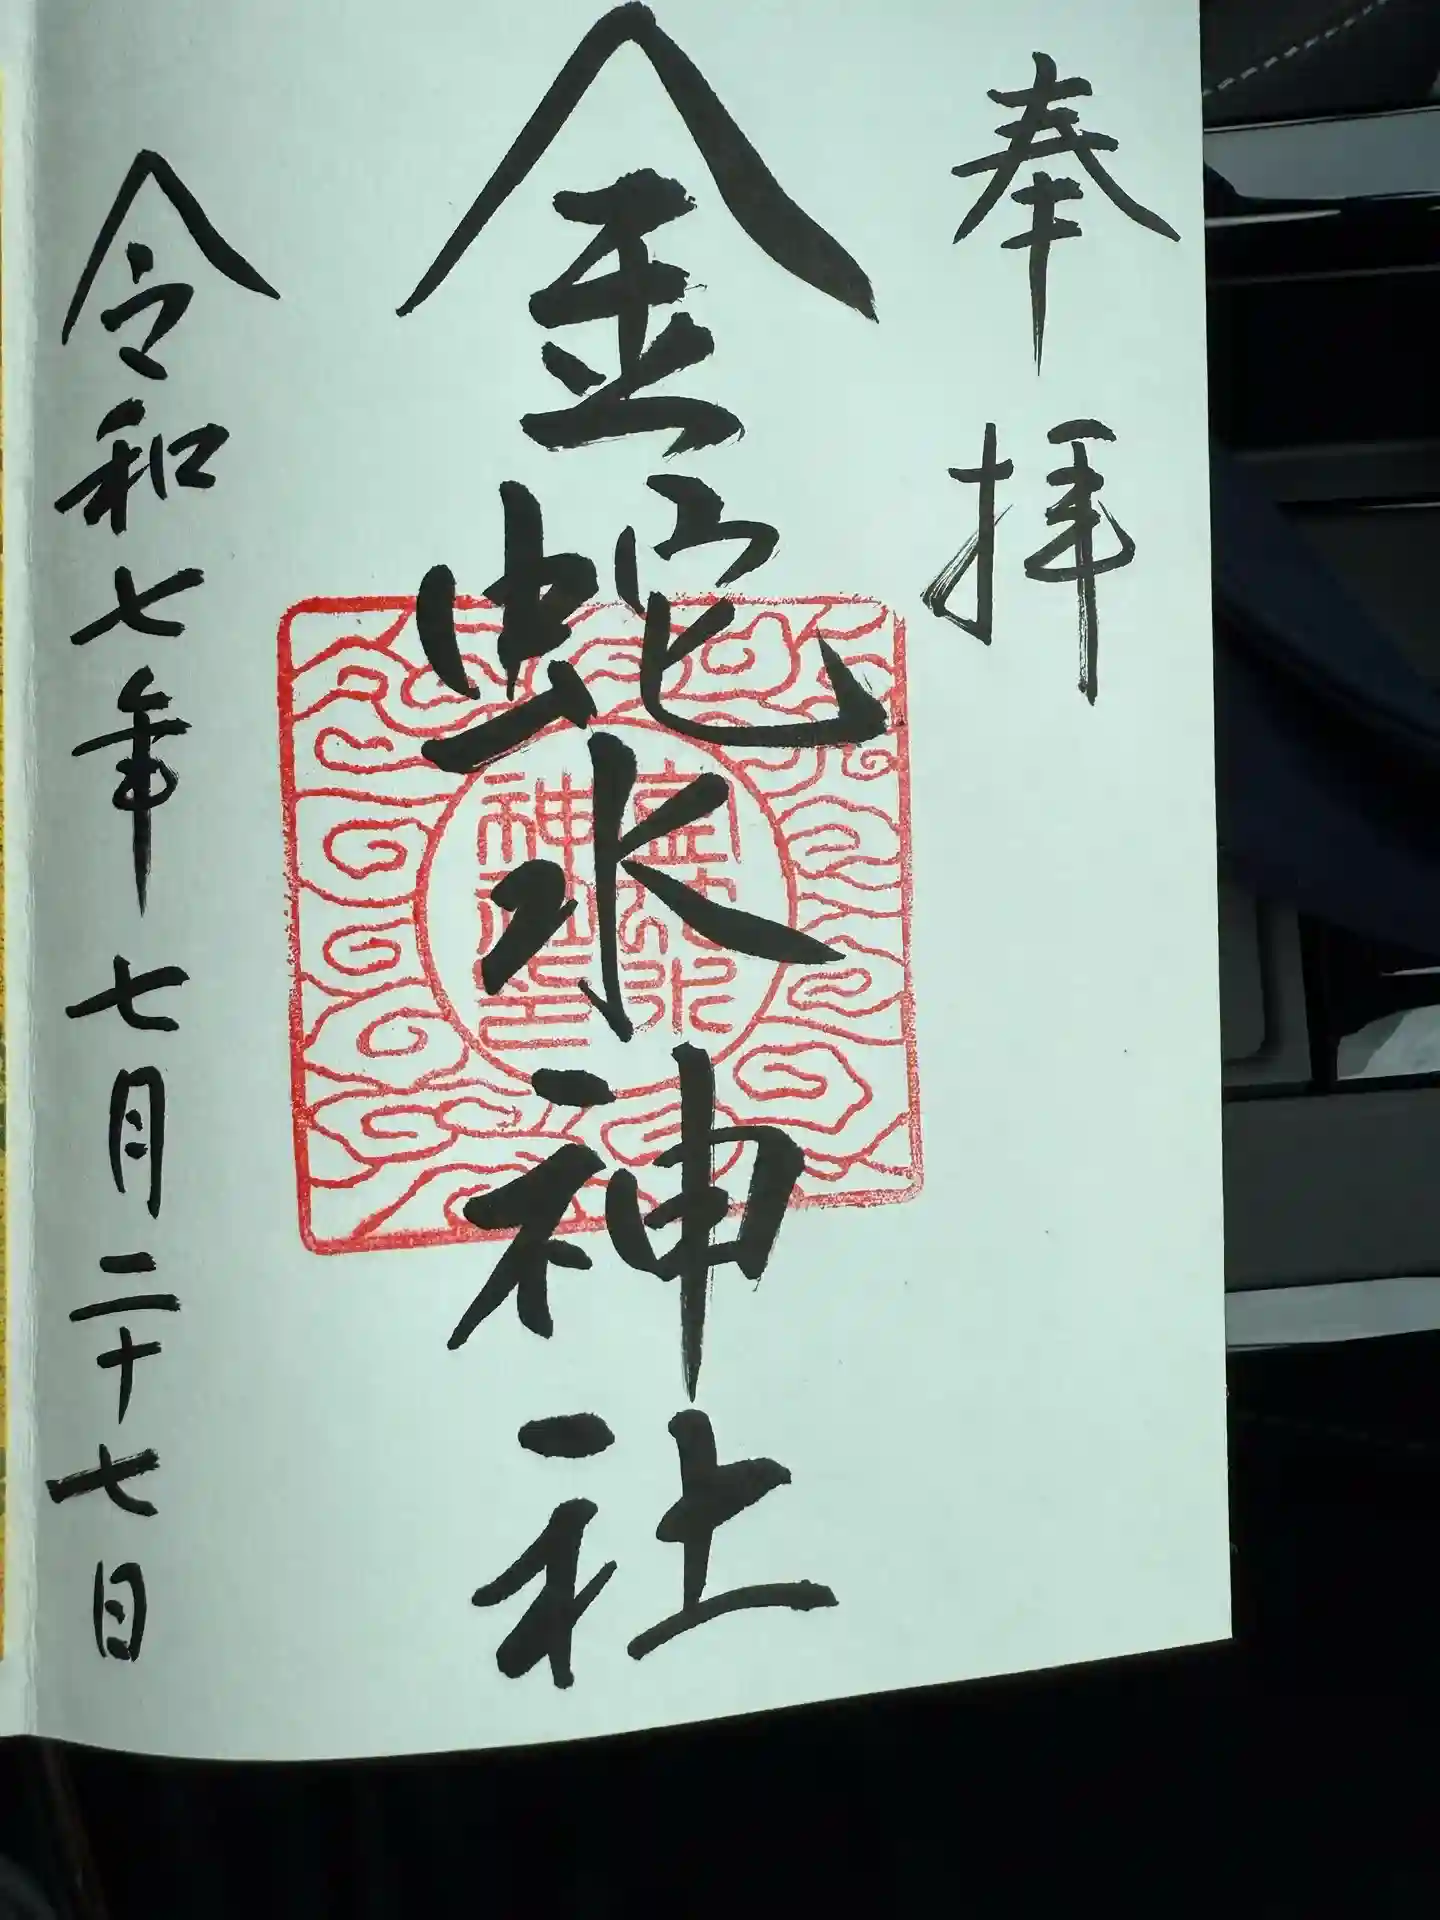 奉拝
金蛇水神社
金蛇水
神社印
令和七年七月二十七日